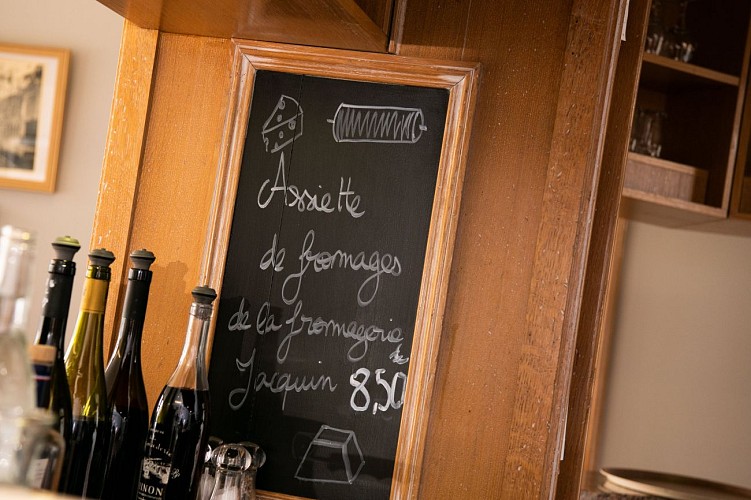 Assiette
de fromages
de la fromagerie
Jacquin 8,50
NON